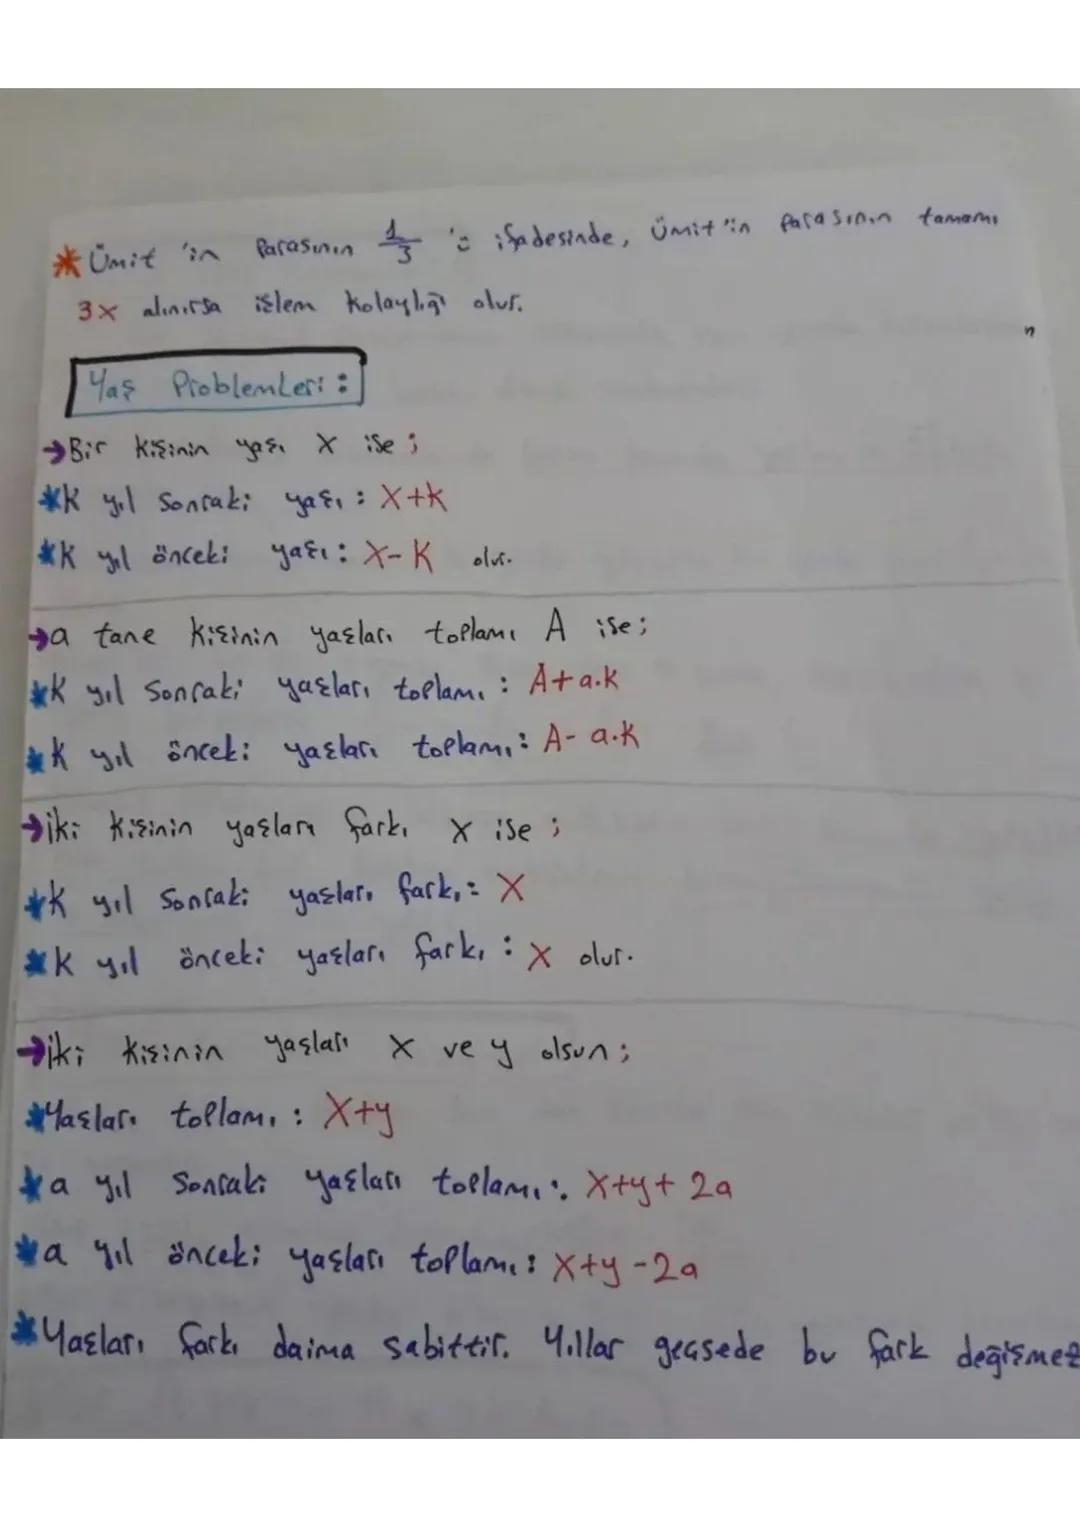 * Ümit 'in Parasının 1/3 'ü ifadesinde, Ümit 'in Parasının tamamı
3x alınırsa işlem kolaylığı olur.
Yaş Problemleri :
→ Bir kişinin yaşı x ise ;
* K yıl sonraki yaşı : x+k
* K yıl önceki yaşı : x-k olur.
→ a tane kişinin yaşları toplamı A ise ;
* K yıl sonraki yaşları toplamı : A+a.k
* K yıl önceki yaşları toplamı : A-a.k
→ iki kişinin yaşları farkı x ise ;
* K yıl sonraki yaşları farkı : x
* K yıl önceki yaşları farkı : x olur.
→ iki kişinin yaşları x ve y olsun ;
* Yaşları toplamı : x+y
* a yıl sonraki yaşları toplamı : x+y+2a
* a yıl önceki yaşları toplamı : x+y-2a
* Yaşları farkı daima sabittir. Yıllar geçsede bu fark değişmez